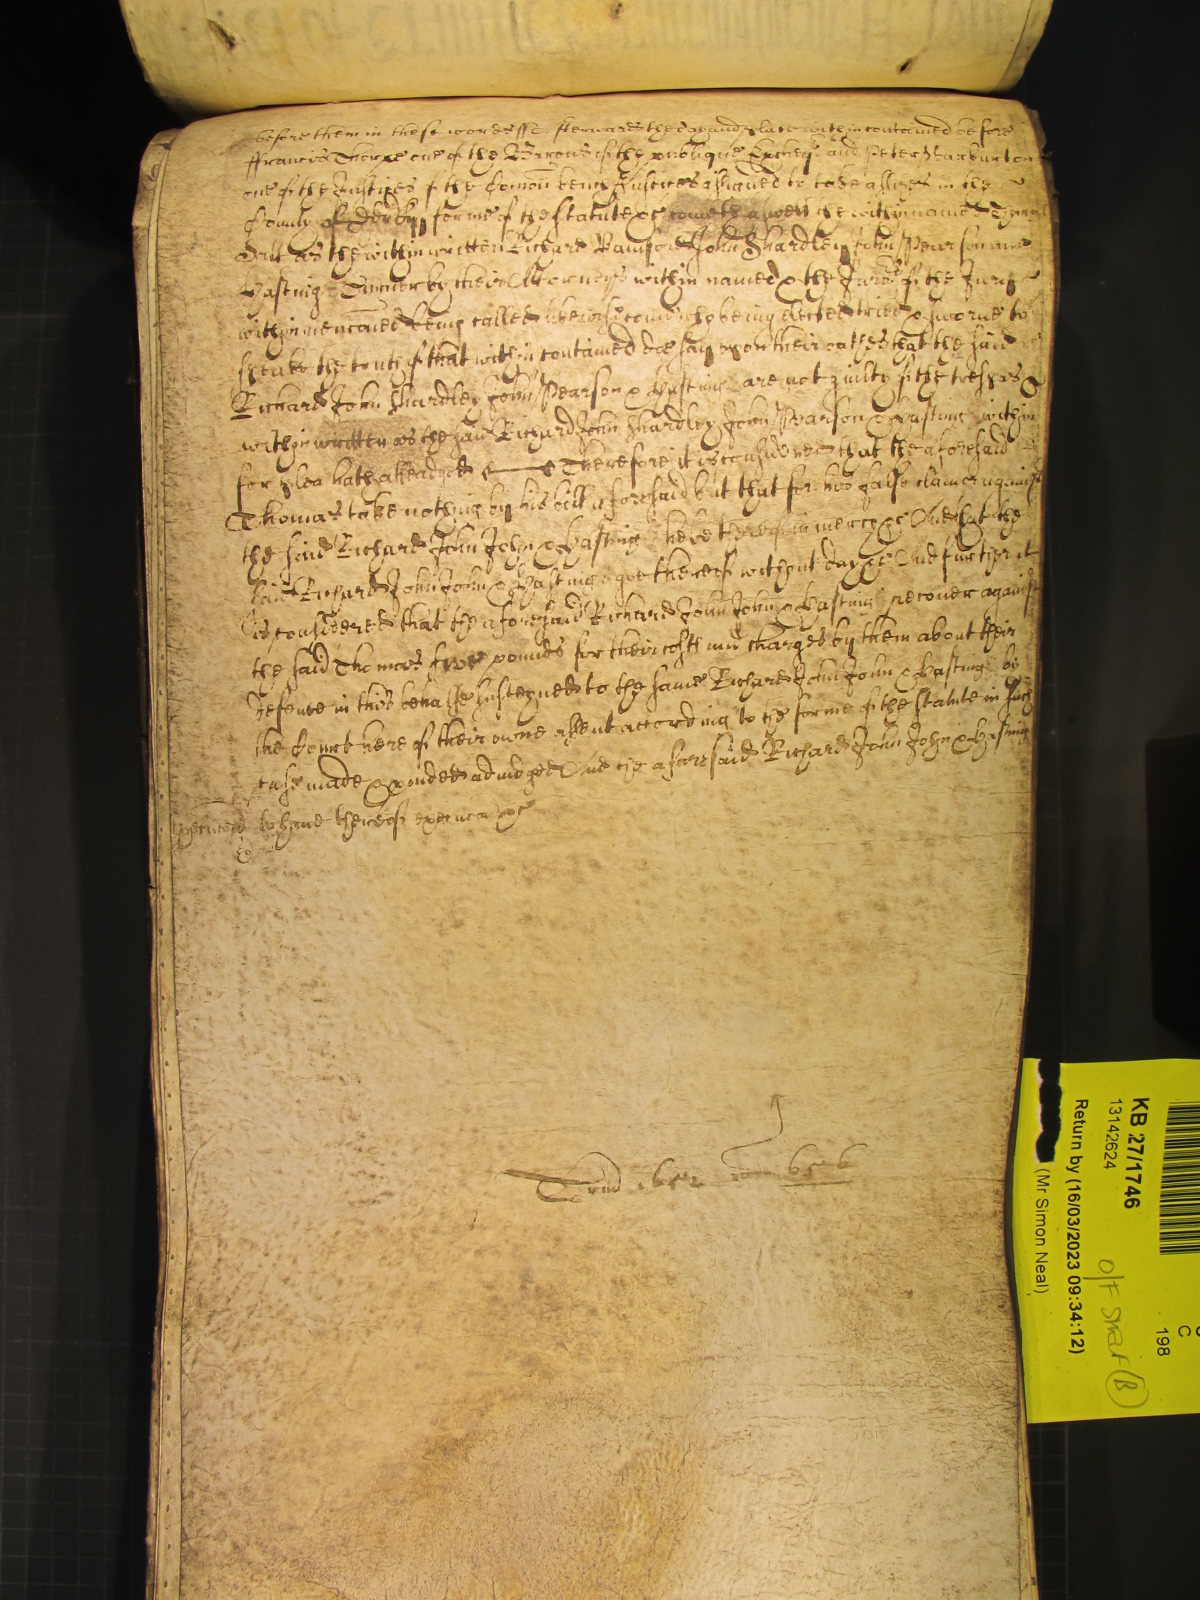 before them in these words ss Afterwards the day and place within contained before
Francis Thorpe one of the Barons of the publique Excheqr and Peter Warburton
one of the Justices of the Comon bench Justices assigned to take assizes in the
County of Derby p forme of the statute &c cometh aswell the within named Thomas
as the within written Richard Bamford John Shardley John Pearson and
Hastings Turner by their Attorneys within named & the Jurors of the Jury
within menconed being called likewise come who being elected tried & sworne to
speake the truth of that within contained doe say upon their oathes that the said
Richard John Shardley John Pearson & Hastings are not guilty of the trespas
within written as the said Richard John Shardley John Pearson & Hastings within
for plea hath alleadged Therefore it is considered that the aforesaid
Thomas take nothing by his bill aforesaid but that for his false clamor against
the said Richard John John & Hastings hee be thereof in mercy &c And that the
said Richard John John & Hastings goe thereof without day &c And further it
is considered that the aforesaid Richard John John & Hastings recover against
the said Thomas pounds for their costs and charges by them about their
defence in this behalfe susteyned to the same Richard John John & Hastings by
the Court here of their owne assent according to the forme of the statute in such
case made & pvided adiudged And the aforesaid Richard John John & Hastings
to have thereof execucon &c
Trin 1652 656
KB 27/1746
13142624
Return by (16/03/2023 09:34:12)
(Mr Simon Neal)
O/F SHELF (B)
C
198